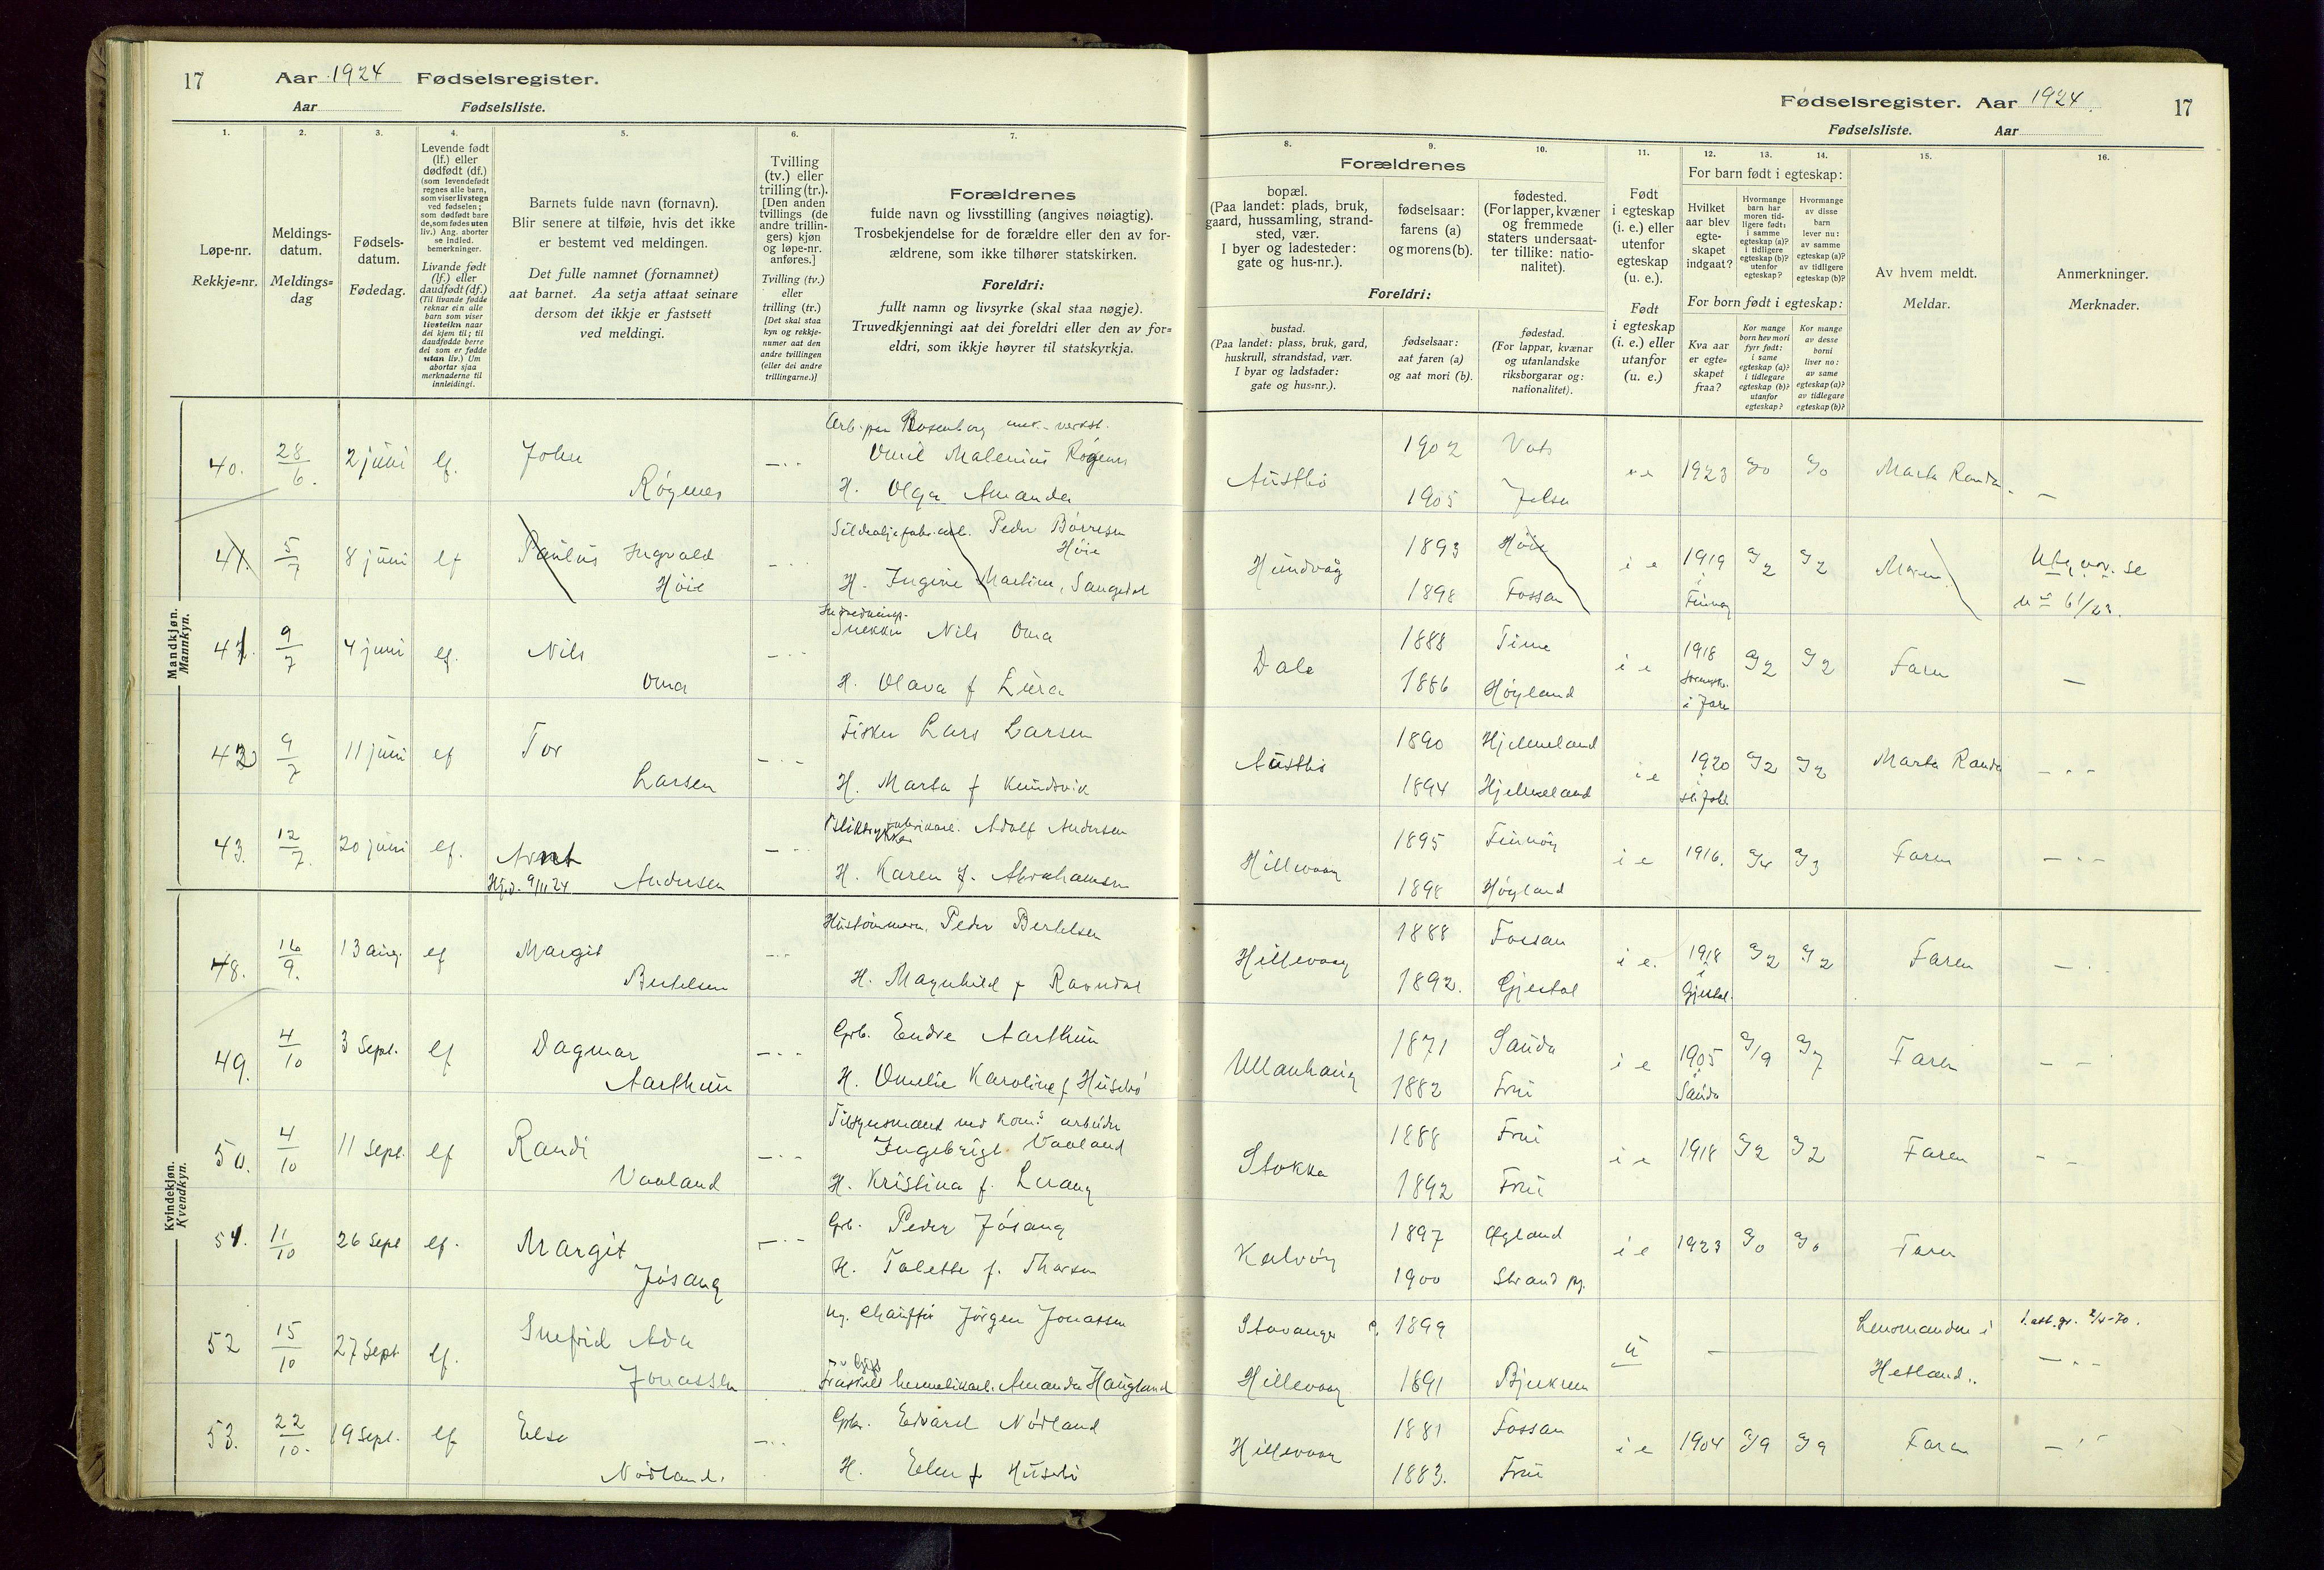 17 Aar 1924 Fødselsregister.
Aar Fødselsliste.
1. 2. 3. 4. 5. 6. 7.
Løpe-nr.
Rekkje=nr.
Meldings-
datum.
Meldings=
dag
Fødsels-
datum.
Fødedag.
Levende født
(lf.) eller
dødfødt (df.)
(som levendefødt
regnes alle barn,
som viser livstegn
ved fødselen;
som dødfødt bare
de, som fødes uten
liv.) Ang. aborter
se indled.
bemerkninger.
Livande født
(lf.) eller
daudfødt (df.)
(Til livande fødde
reknar ein alle
barn som viser
livsteikn naar
dei kjem til; til
daudfødde berre
dei som er fødde
utan liv.) Um
abortar sjaa
merknaderne til
innleidingi.
Barnets fulde navn (fornavn).
Blir senere at tilføie, hvis det ikke
er bestemt ved meldingen.
Det fulle namnet (fornamnet)
aat barnet. Aa setja attaat seinare
dersom det ikkje er fastsett
ved meldingi.
Tvilling
(tv.) eller
trilling (tr.).
[Den anden
tvillings (de
andre trillin-
gers) kjøn
og løpe-nr.
anføres.]
Tvilling (tv.)
eller
trilling (tr.)
[Det skal staa
kyn og rekkje-
numer aat den
andre tvillingen
(eller dei andre
trillingarne.)]
Forældrenes
fulde navn og livsstilling (angives nøiagtig).
Trosbekjendelse for de forældre eller den av for-
ældrene, som ikke tilhører statskirken.
Foreldri:
fullt namn og livsyrke (skal staa nøgje).
Truvedkjenningi aat dei foreldri eller den av for=
eldri, som ikkje høyrer til statskyrkja.
Mandkjøn.
Mannkyn.
40. 28/6. 2 juni lf. John Røgenes
Olga Amanda
41. 5/7 8 juni lf Paulus Ingvald Høie
Peder Børresen Høie
H. Ingine Martine, Sangedal
41. 9/7 4 juni lf. Nils Oma
Snekker Nils Oma
H. Olava f Lura
42 9/7 11 juni lf Tor Larsen
Fisker Lars Larsen
H. Marta f Kundsvik
43. 12/7. 20 juni lf. Arnt Andersen
Adolf Andersen
H. Karen f. Abrahamsen
Kvindekjøn.
Kvendkyn.
48. 16/9. 13 aug. lf Margit Bertelsen
Hustømmerm. Peder Bertelsen
H. Magnhild f Ravndal
49. 4/10 3 Sept. lf Dagmar Aarthun
Grb. Endre Aarthun
H. Omelie Karoline f Husebø
50. 4/10 11 Sept. lf Randi Vaaland
Tilsynsmand ved kom.s arbeider
Ingebrigt Vaaland
H. Kristina f. Lerang
51. 11/10 26 Sept lf. Margit Jøsang
Grb. Peder Jøsang
H. Talette f. Tharsen
52 15/10 27 Sept lf. Snefrid Ada Jonassen
Ug. Chauffør Jørgen Jonassen
Amanda Haugland
53. 22/10. 19 Sept. lf Else Nødland.
Grbr. Edvard Nødland
H. Elen f Husebø
Fødselsregister. Aar 1924. 17
Fødselsliste. Aar
8. 9. 10. 11. 12. 13. 14. 15. 16.
Forældrenes
bopæl.
(Paa landet: plads, bruk,
gaard, hussamling, strand-
sted, vær.
I byer og ladesteder:
gate og hus-nr.).
fødselsaar:
farens (a)
og morens (b).
fødested.
(For lapper, kvæner
og fremmede
staters undersaat-
ter tillike: natio-
nalitet).
Foreldri:
bustad.
(Paa landet: plass, bruk, gard,
huskrull, strandstad, vær.
I byar og ladstader:
gate og hus=nr.).
fødselsaar:
aat faren (a)
og aat mori (b).
fødestad.
(For lappar, kvænar
og utanlandske
riksborgarar og:
nationalitet).
Født
i egteskap
(i. e.) eller
utenfor
egteskap
(u. e.).
Født
i egteskap
(i. e.) eller
utanfor
(u. e.)
For barn født i egteskap:
Hvilket
aar blev
egte-
skapet
indgaat?
Hvormange
barn har
moren tid-
ligere født:
i samme
egteskap (a)?
i tidligere
egteskap (b)?
utenfor
egteskap?
Hvormange
av disse
barn
lever nu:
av samme
egteskap (a)?
av tidligere
egteskap (b)?
For born født i egteskap:
Kva aar
er egte=
skapet
fraa?
Kor mange
born hev mori
fyrr født:
i same
egteskap (a)?
i tidlegare
egteskap (b)?
utanfor
egteskap?
Kor mange
av desse
borni
liver no:
av same
egteskap (a)?
av tidlegare
egteskap (b)?
Av hvem meldt.
Meldar.
Anmerkninger.
Merknader.
Austbø 1902 Vats 1923 Marta Randa
1905 Jelsa
Hundvåg 1893 Høie i e 1919
1898 Fossan
Dale 1888 Time i e 1918 Faren
1886 Høyland
Austbø 1890 Hjelmeland i e 1920 Marta Randa
1894 Hjelmeland
Hillevaag 1895 Finnøy i e 1916. Faren
1898 Høyland
Hillevaag 1888 Fossan i e. 1918 i Gjestal. Faren
1892. Gjestal
Ullanhaug 1871 Sauda i e 1905 i Sauda Faren
1882 Frue
Stokka 1888 Frue i e 1918 Faren
1892 Frue
Kalvøy 1897 Øgland i e 1923 Faren
1900 Strand pg.
Stavanger 1899 u Lensmanden i
Hillevaag 1891 Bjerkreim Hetland.
Hillevaag 1881 Fossan i e 1904 Faren
1883. Frue